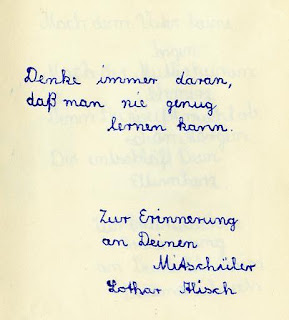 Denke immer daran,
daß man nie genug
lernen kann.
Zur Erinnerung
an Deinen
Mitschüler
Lothar Alisch